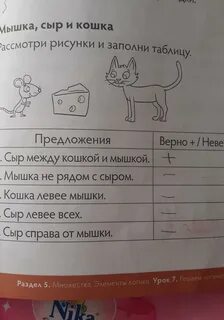 Мышка, сыр и кошка
Рассмотри рисунки и заполни таблицу.
Предложения Верно + / Неве
. Сыр между кошкой и мышкой. +
. Мышка не рядом с сыром. −
. Кошка левее мышки. −
. Сыр левее всех. −
. Сыр справа от мышки. −
Раздел 5. Множества. Элементы логики Урок 7. Решаем логически
Nika